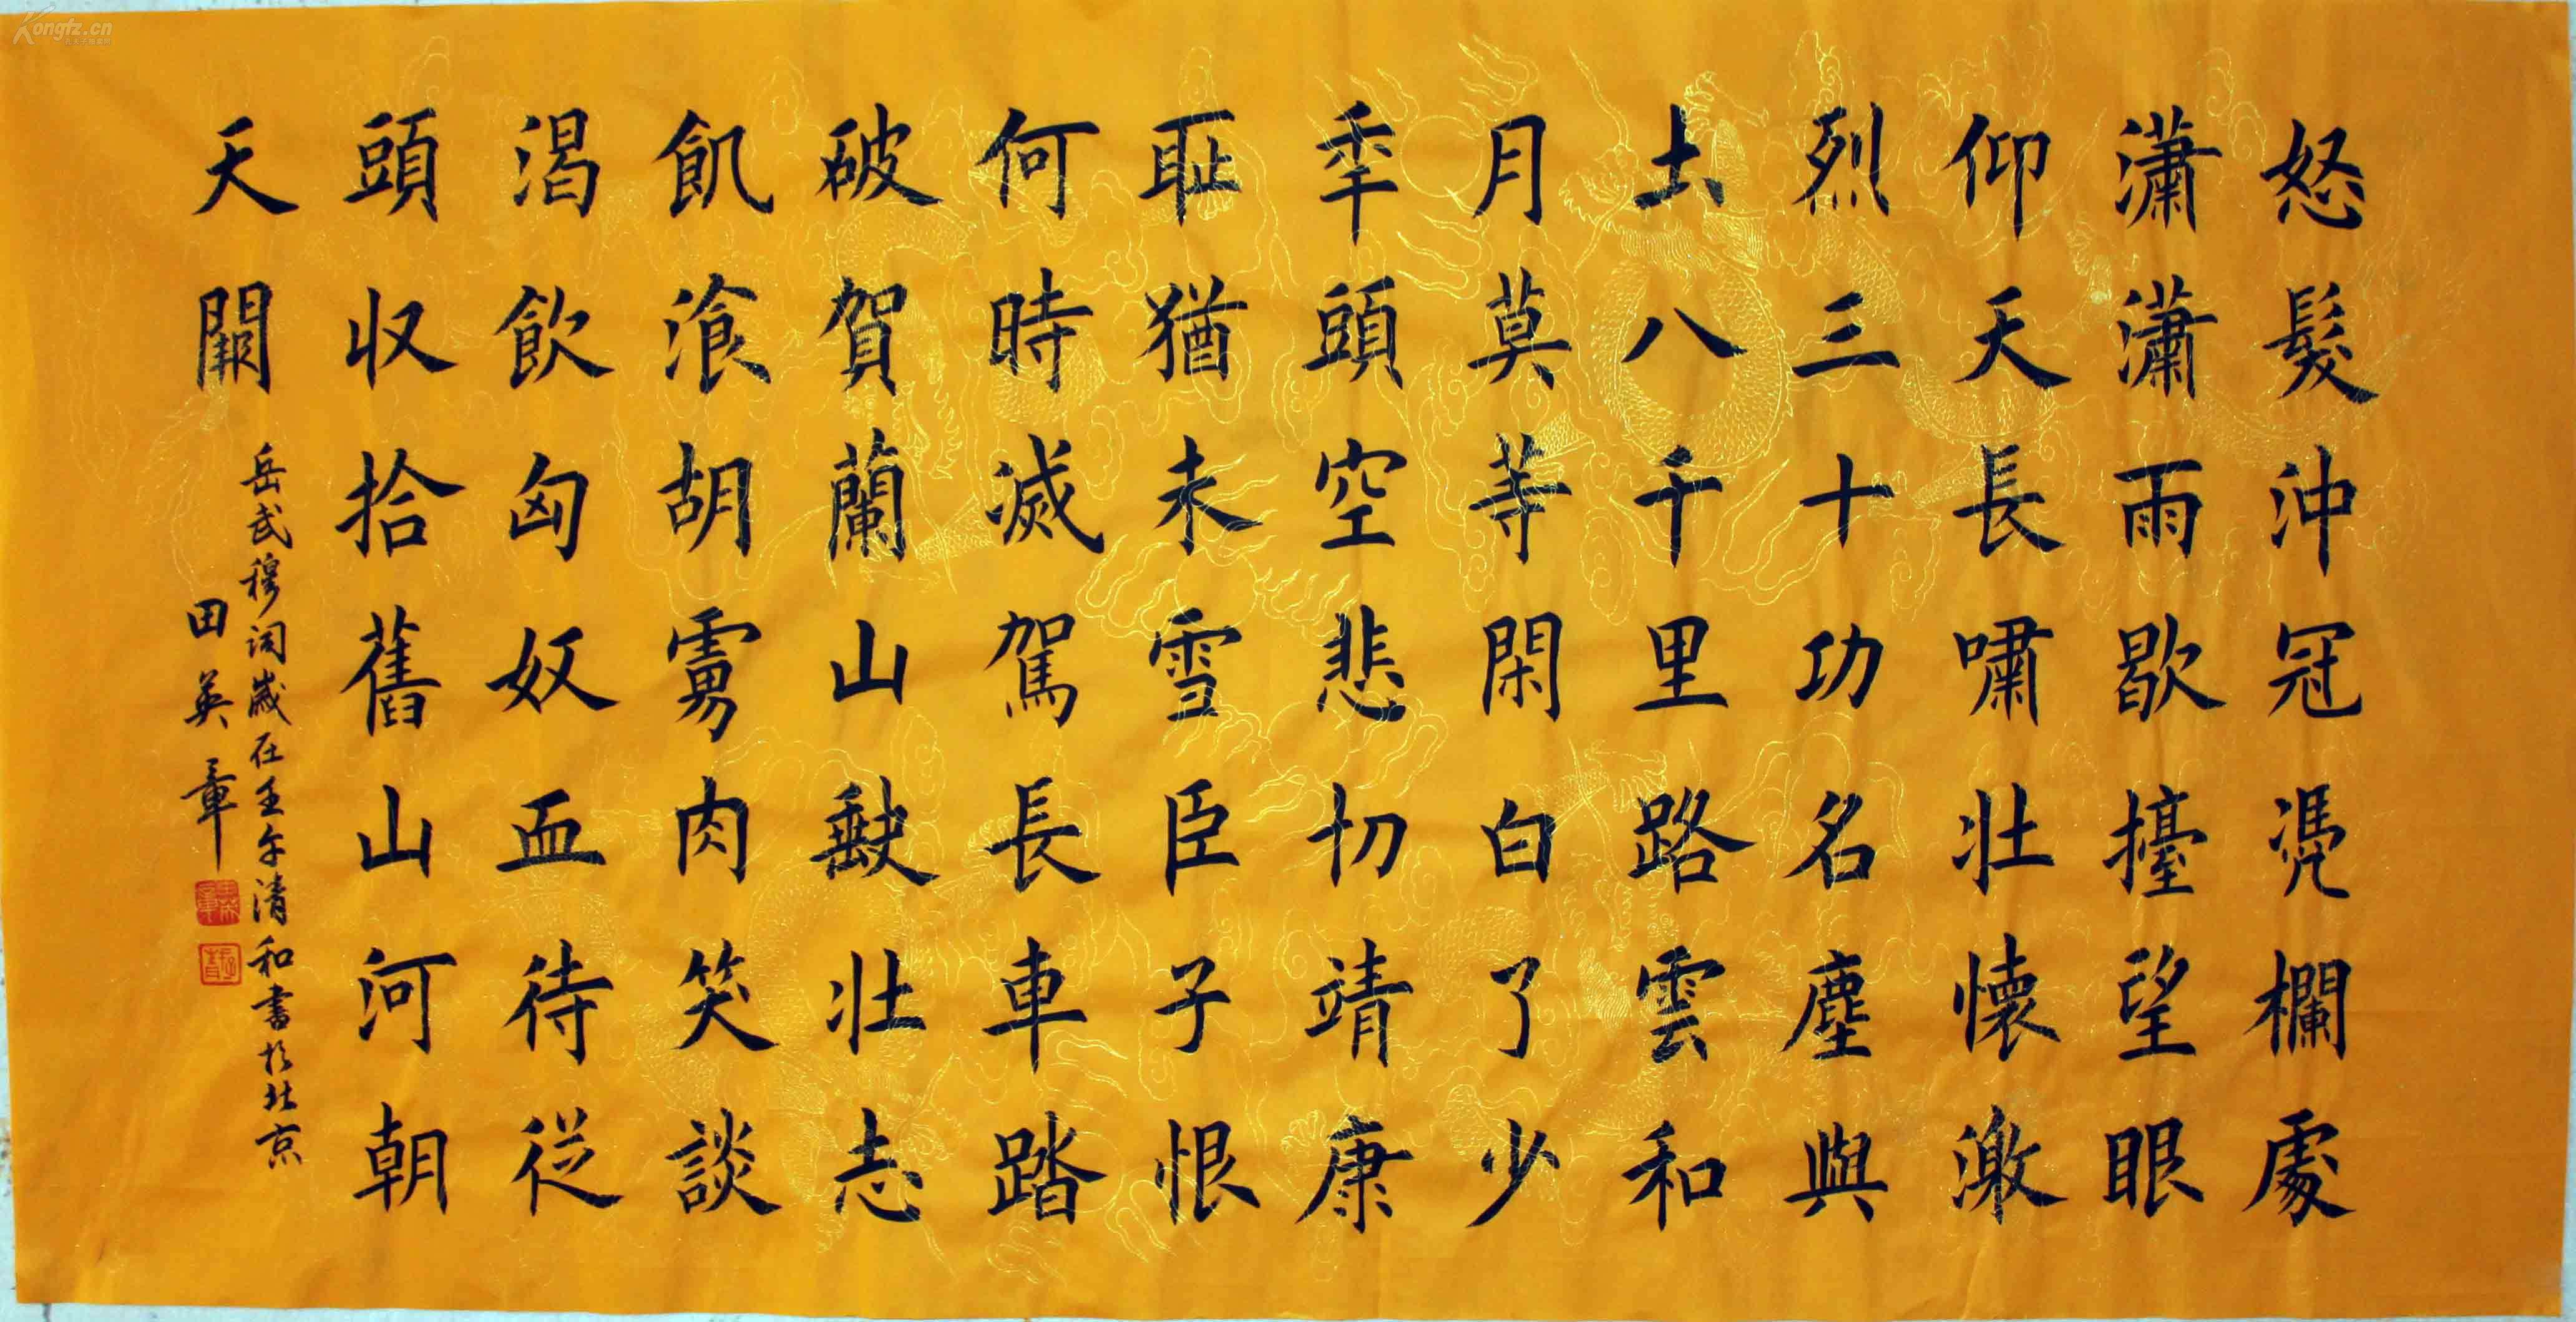 怒髮沖冠凴欄處
瀟瀟雨歇擡望眼
仰天長嘯壯懷激
烈三十功名塵與
土八千里路雲和
月莫等閑白了少
年頭空悲切靖康
耻猶未雪臣子恨
何時滅駕長車踏
破賀蘭山缺壯志
飢湌胡虜肉笑談
渴飲匈奴血待從
頭收拾舊山河朝
天闕
岳武穆词歲在壬午清和書於北京
田英章
Kongfz.cn